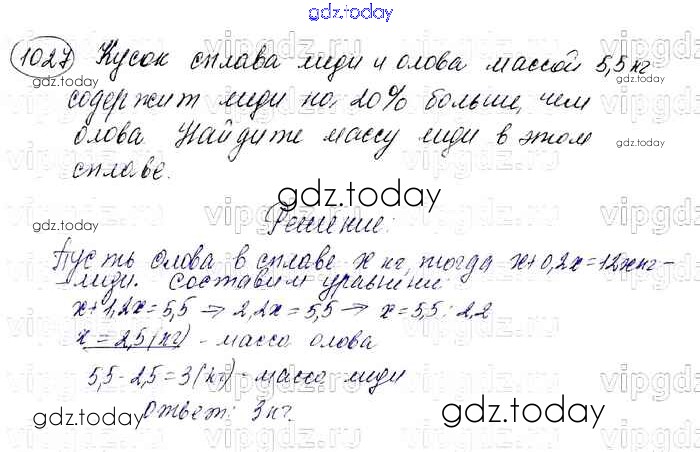 gdz.today
1027 Кусок сплава меди и олова массой 5,5 кг
содержит меди на 20% больше, чем
олова. Найдите массу меди в этом
сплаве.
gdz.today
gdz.today
gdz.today
Решение:
Пусть олова в сплаве x кг, тогда x+0,2x=12x кг –
меди. Составим уравнение:
x+1,2x=5,5 → 2,2x=5,5 → x=5,5:2,2
x=2,5(кг) - масса олова
gdz.today
5,5-2,5=3(кг) - масса меди
Ответ: 3 кг.
gdz.today
gdz.today